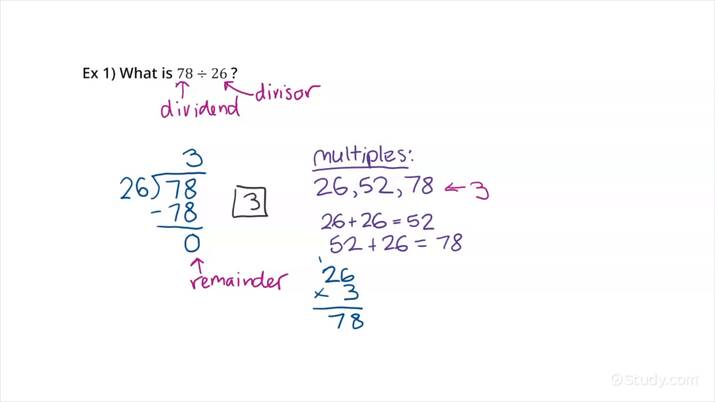 Ex 1) What is 78 ÷ 26 ?
dividend
divisor
3
26)78
-78
0
remainder
3
multiples:
26, 52, 78 ← 3
26 + 26 = 52
52 + 26 = 78
1
26
× 3
78
©Study.com